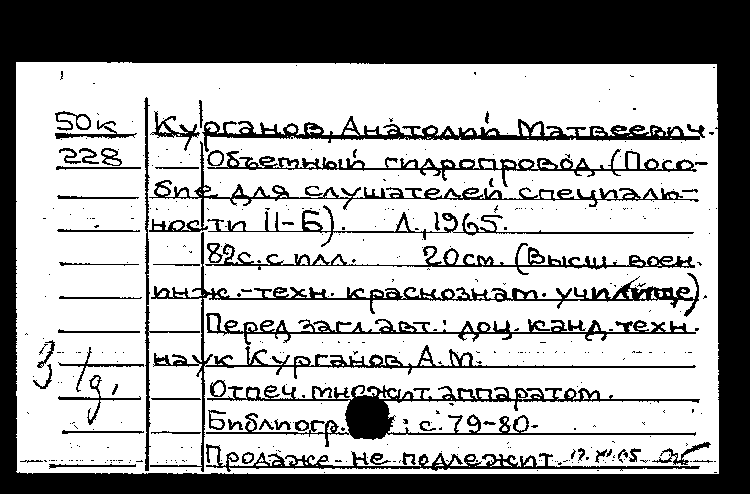 50к Курганов, Анатолий Матвеевич.
228 Объемный гидропровод. (Посо-
бие для слушателей специаль-
ности II-Б). Л., 1965.
82с. с илл. 20см. (Высш. воен.
инж.-техн. краснознам. училище).
Перед загл. авт.: доц. канд. техн.
наук Курганов, А.М.
Отпеч. множит. аппаратом.
Библиогр. : с. 79-80.
Продаже не подлежит